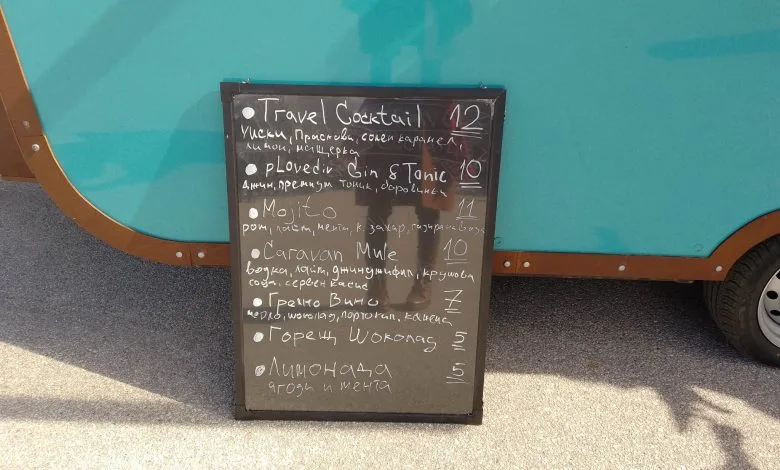 Travel Cocktail 12
уиски, Праскова, солен карамел,
лимон, мащерка
pLovediv Gin & Tonic 10
Джин, премиум тоник, боровинки
Mojito 11
ром, лайм, мента, к. захар, газирана вода
Caravan Mule 10
Водка, лайм, джинджифил, крушова
сода, сервен касис
Греяно Вино 7
шоколад, портокал, канела
Горещ Шоколад 5
Лимонада 5
ягоди и мента